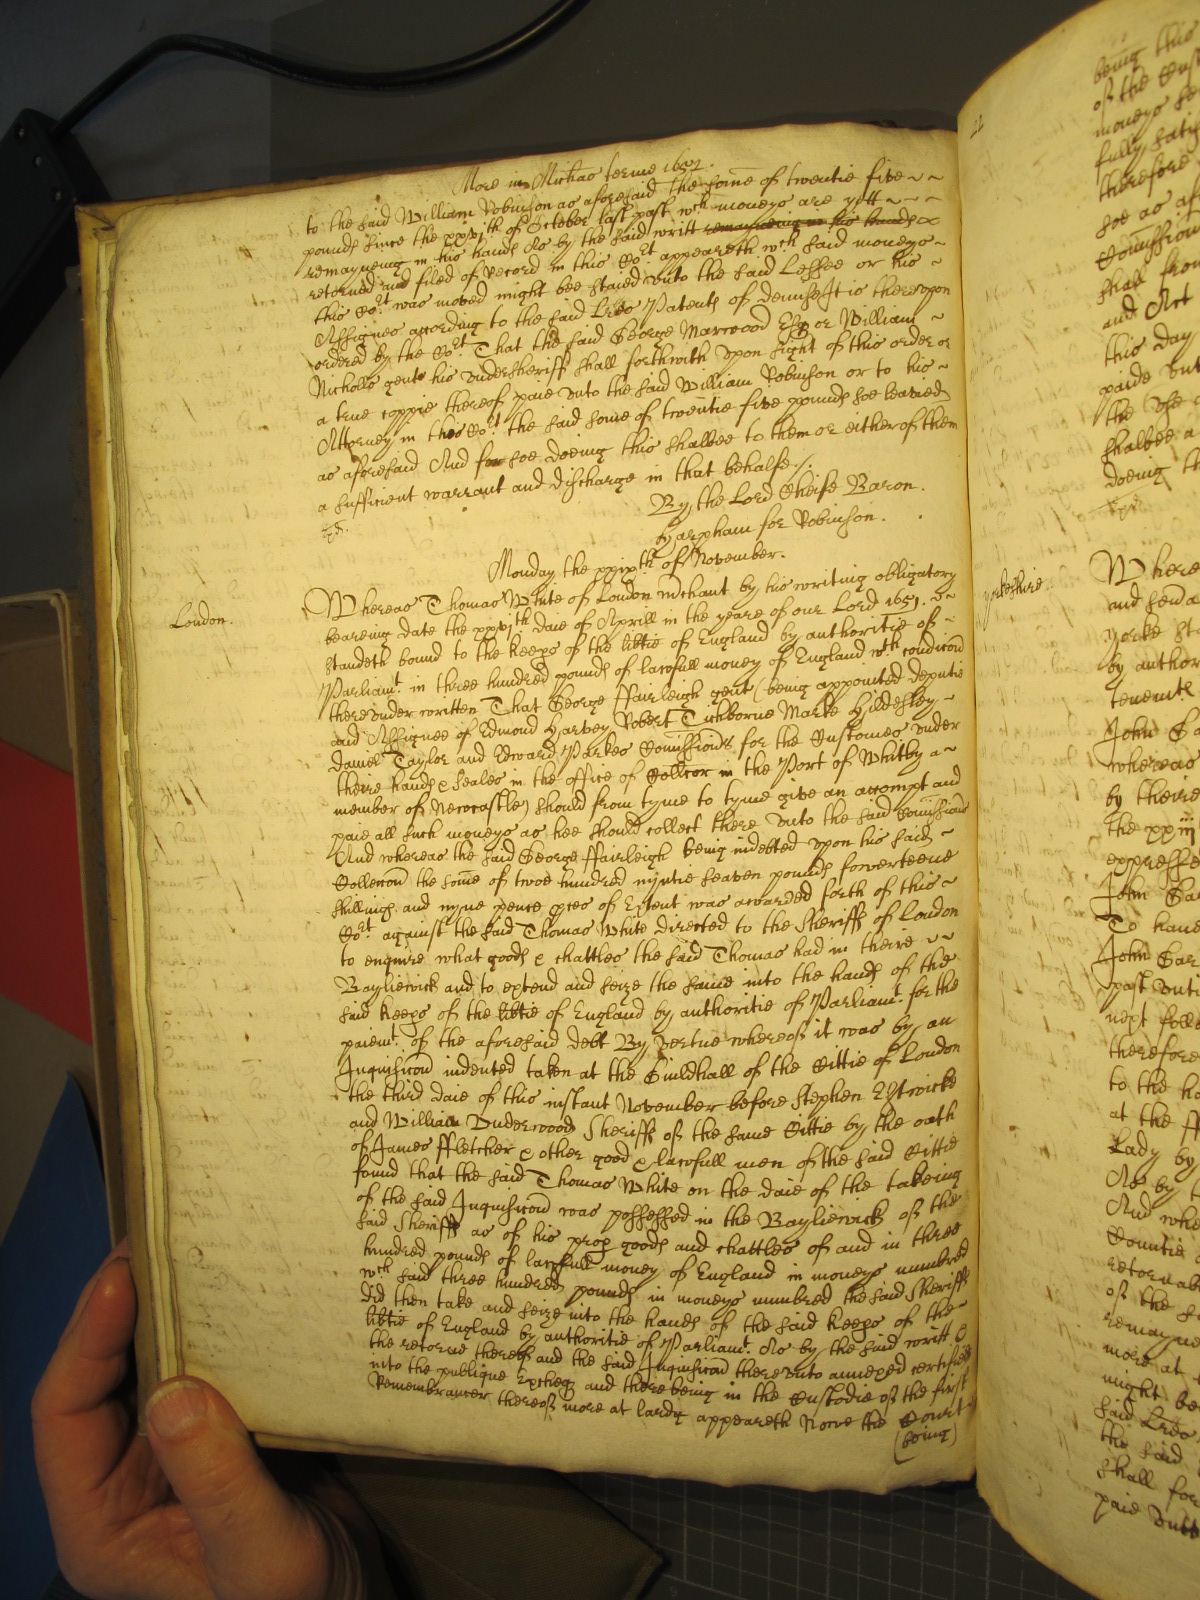 More in Michas terme 1652.
to the said William Robinson as aforesaid The some of twentie five
pounds since the xxvith of October last past wch moneys are yett
remayneing in his hands As by the said writt remayneing in his hands
retorned and filed of Record in this Cort appeareth wch said moneys
this Cort was moved might bee staied unto the said Lessee or his
Assignes according to the said Lres Patents of demise It is thereupon
ordered by the Cort. That the said George Marwood Esq or William
Nicholls gent his undersheriff shall forthwith upon sight of this order or
a true coppie thereof paie unto the said William Robinson or to his
Attorney in this Cort the said some of twentie five pounds soe leavied
as aforesaid And for soe doeing this shalbee to them or either of them
a sufficient warrant and discharge in that behalfe /.
By the Lord Cheife Baron.
harpham for Robinson.
Monday the xxixth of November.
London.
Whereas Thomas White of London mchant by his writing obligatory
beareing date the xxvith daie of Aprill in the yeare of our Lord 1651.
standeth bound to the Keeps of the libtie of England by authoritie of
Parliamt. in three hundred pounds of lawfull money of England wth condicon
thereunder written That George ffairleigh gent (being appointed deputie
and Assignee of Edmond Harvey Robert Tichborne Marke Hildesley
Daniel Taylor and Edward Parkes Comissionrs for the Customes under
theire hands & seales in the office of Collcor in the Port of Whitby a
member of Newcastle) should from tyme to tyme give an accompt and
paie all such moneys as hee should collect there unto the said Comissionrs
And whereas the said George ffairleigh being indebted upon his said
Colleccon the some of twoe hundred nyntie seaven pounds fowerteene
shillings and nyne pence pces of Extent was awarded forth of this
Cort. against the said Thomas White directed to the Sheriffs of London
to enquire what goods & chattles the said Thomas had in theire
Bayliewick and to extend and seize the same into the hands of the
said Keeps of the libtie of England by authoritie of Parliamt. for the
paiemt. of the aforesaid debt By vertue whereof it was by an
Inquisicon indented taken at the Guildhall of the Cittie of London
the third daie of this instant November before Stephen Estwicke
and William Underwood Sheriffs of the same Cittie by the oath
of James ffletcher & other good & lawfull men of the said Cittie
found that the said Thomas White on the daie of the takeing
of the said Inquisicon was possessed in the Bayliewick of the
said Sheriffs as of his prop goods and chattles of and in three
hundred pounds of lawfull money of England in moneys numbred
wch said three hundred pounds in moneys numbred the said Sheriffs
did then take and seize into the hands of the said Keeps of the
libtie of England by authoritie of Parliamt. As by the said writt &
the retorne thereof and the said Inquisicon thereunto annexed certified
into the publique Excheqr and there being in the Custodie of the first
Remembrancer thereof more at lardg appeareth Nowe the Court
(being)
22
being this
of the
moneys
fully satis
therefore
soe as af
Comission
shall from
and Act
this day
paide unt
the use
shalbee a
doeing th
yorkeshire.
Where
and
yorke
by author
tenemte
John
whereas
by theire
the
expresse
John
To have
John
past unti
next foll
therefore
to the
at the
Lady by
As by
And whe
Countie
retornab
of the
remayne
more at
might be
said Lres
the said
shall for
paie unto